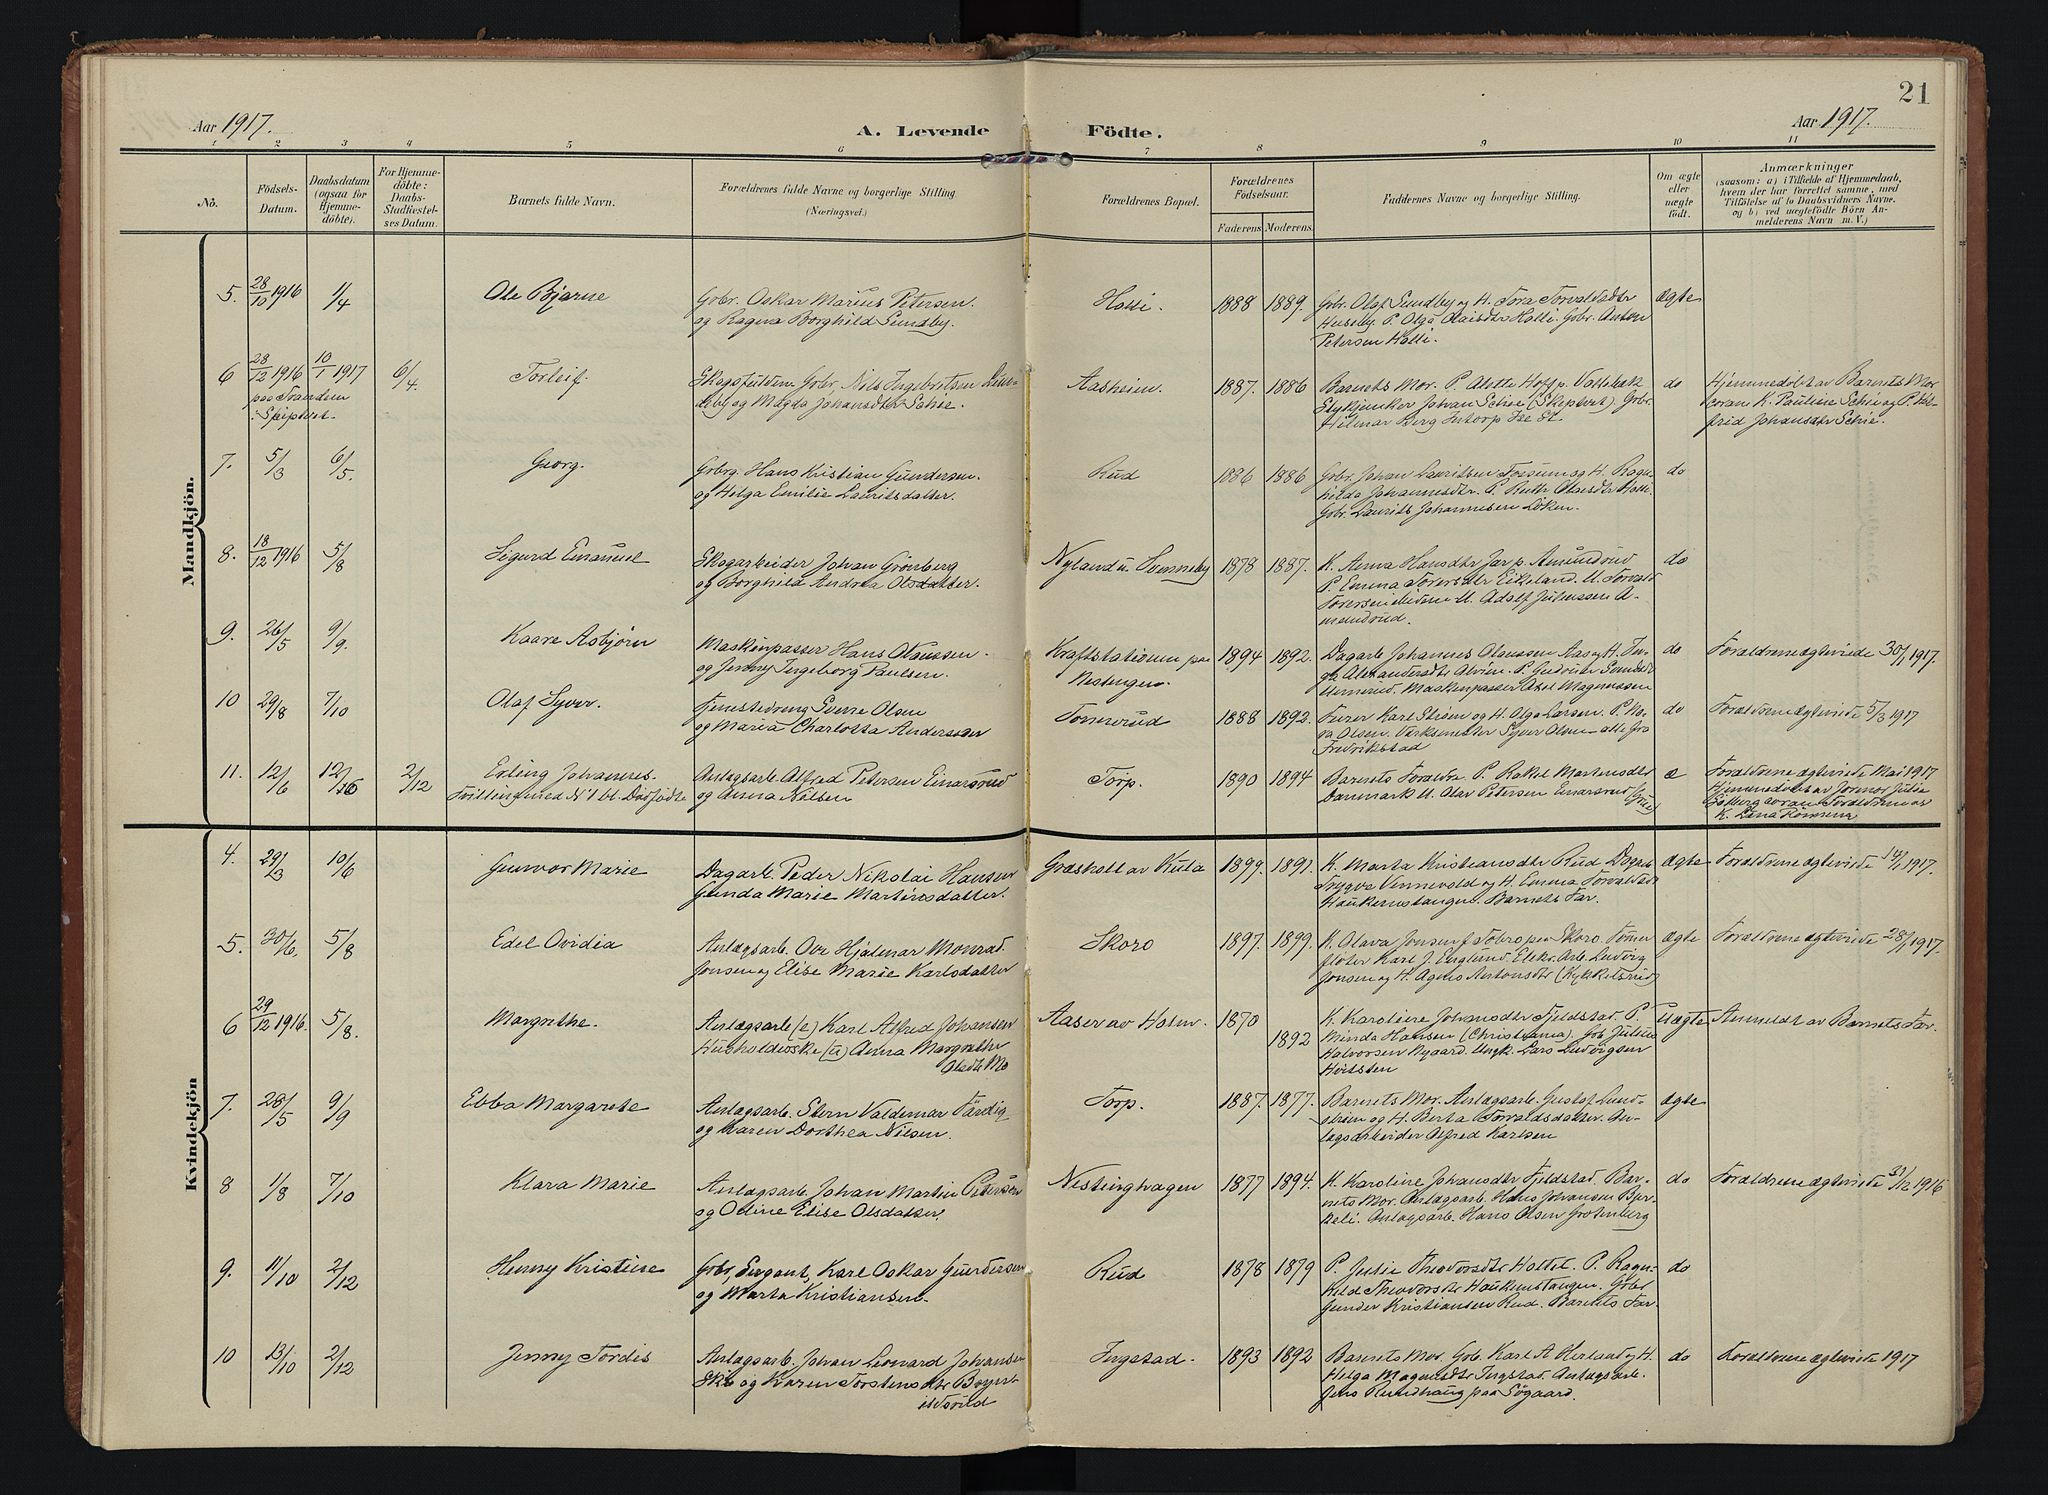 21
Aar 1917.
A. Levende
Födte.
Aar 1917.
1 2 3 4 5 6 7 8 9 10 11
No.
Födsels-
Datum.
Daabsdatum
(ogsaa for
Hjemme-
döbte).
For Hjemme-
döbte:
Daabs-
Stadfæstel-
ses Datum.
Barnets fulde Navn.
Forældrenes fulde Navne og borgerlige Stilling
(Næringsvei.)
Forældrenes Bopæl.
Forældrenes
Födselsaar.
Faderens Moderens.
Faddernes Navne og borgerlige Stilling.
Om ægte
eller
uægte
födt.
Anmærkninger
(saasom: a) i Tilfælde af Hjemmedaab,
hvem der har forrettet samme, med
Tilföielse af to Daabsvidners Navne.
og b) ved uægtefödte Börn An-
melderens Navn m. V.)
Mandkjön.
5. 28/10 1916 1/4 Ole Bjarne
Gbr. Oskar Marius Petersen
og Ragna Borghild Sundby.
Holli. 1888 1889.
Gbr. Olaf Sundby og H. Tora Torvaldsdtr
Huseby. P. Olga Olaisdtr Holli. Gbr. Anton
Petersen Holli.
ægte
6 28/12 1916 10/1 1917 6/4. Torleif.
paa Tranden
i Skiptvet.
Skogsfuldm. Gbr. Nils Ingebretsen
og Magda Johansdtr Schie.
Aasheim. 1887. 1886
Barnets Mor. P. Alette Hoff p. Vallebæk
Stykjunker Johan Schie (Skiptvet). Gbr.
Hilmar Berg Intorp
do
Hjemmedøbt av Barnets Mor
K. Pauline Schie og P.
frid Johansdtr Schie.
7. 5/3 6/5. Georg.
Gbrg. Hans Kristian Gundersen.
og Helga Emilie Lauritsdatter.
Rud 1886 1886
Gbr. Johan Lauritsen Fossum og H. Ragn-
hilda Johannesdtr. P. Ruth Olaisdtr Holli.
Gbr. Laurits Johannesen Løken.
do
8. 18/12 1916 5/8 Sigurd Emanuel
Skogarbeider Johan Grönberg
og Borghild Andrea Olsdatter.
Nyland u. Svenneby 1878 1887.
K. Anna Hansdtr Jar p. Amundrud
P. Emma Torersdtr Eikeland. U. Torvald
Torersen U. Adolf Juliussen A-
mundrud.
do
9. 26/5 9/9. Kaare Asbjørn
Maskinpasser Hans Olaussen.
og Jenny Ingeborg Paulsen.
Kraftstationen paa
Nestengen. 1894 1892.
Dagarb. Johannes Olaussen Aas og H. In-
ga Alexandersdtr P. Gudrun
Maskinpasser Axel Magnussen
do
Forældrene ægteviede 30/1 1917.
10 29/8 7/10 Olaf Syver.
Tjenestedreng Sverre Olsen
og Maria Charlotta Andersson
Tomerud 1888 1892.
Furer Karl Strøm og H. Olga Larsen. P.
Olsen. Værksmester Syver Olsen - alle fra
Fredrikstad
do
Forældrene ægteviede 5/3 1917
11. 12/6 12/6 2/12 Erling Johannes.
Tvilling med N° 1 bl. Dødfødte
Anlagsarb. Alfred Petersen Einarsrud
og Anna Nilsen
Torp. 1890 1894
Barnets Forældre. P. Rakel Martinsdtr
Danmark U. Olav Petersen Einarsrud
æ
Forældrene ægteviede Mai 1917
Hjemmedøbt av Jormor Julie
Forældrene og
K. Lina
Kvindekjön
4. 29/3 10/6 Gunvor Marie
Dagarb. Peder Nikolai Hansen
Gunda Marie Martinsdatter.
Græsholt av Kula 1899. 1891.
K. Marta Kristiansdtr Rud Dagarb.
Trygve Vennevold og H. Emma Torvaldsdtr
Haukenestangen. Barnets Far.
ægte
Forældrene ægteviede 14/1 1917.
5. 30/6. 5/8 Edel Ovidia
Anlægsarb. Ove Hjalmar Monrad
Jonsen og Elise Marie Karlsdatter
Skoro 1897. 1899.
K. Olava Skoro. Tømmer
fløter Karl J. Englund. Elekr. Arb. Ludvig
Jonsen og H. Agnes Antonsdtr (Kykkelsrud)
ægte
Forældrene ægteviede 28/1 1917.
6 29/12 1916. 5/8. Margrethe.
Anlægsarb. (e) Karl Alfred Johansen
Husholderske (u) Anna Margrethe
Olsdtr Mo
Aaser av Holen. 1870 1892
K. Karoline Johansdtr Fjeldstad. P.
Minda Hansen (Christiania). Gbr Julius
Halvorsen Nygaard. Ungk. Lars Ludvigsen
Hvitsten
Uægte
Anmeldt av Barnets Far.
7. 28/5 9/9 Ebba Margarete
Anlægsarb. Stern Valdemar Færdig
og Karen Dorthea Nilsen.
Torp. 1887. 1877.
Barnets Mor. Anlægsarb. Gustaf Lund-
strøm og H. Berta Torvaldsdatter. An-
lægsarbeider Alfred Karlsen
ægte
8 1/8 7/10 Klara Marie
Anlægsarb. Johan Martin Petersen
og Odine Elise Olsdatter.
Nestinghagen 1877 1894.
K. Karoline Johansdtr Fjeldstad. Bar-
nets Mor. Anlagsarb. Hans Johansen Bjer-
keli. Anlagsarb. Hans Olsen Grotenberg
do
Forældrene ægteviede 31/12 1916
9. 11/10 2/12 Henny Kristine
Gbr, Sergeant, Karl Oskar Gundersen
og Marta Kristiansen.
Rud 1878 1879
P. Julie Theodorsdtr Holtet. P. Ragn-
hild Theodorsdtr Haukenestangen. Gbr.
Gunder Kristiansen Rud. Barnets Far.
do
10 13/10 2/12 Jenny Tordis
Anlægsarb. Johan Leonard Johansen
Ski og Karen Torstensdtr Boger
Ingstad. 1893 1892
Barnets Mor. Gbr. Karl A Herland og H.
Helga Magnusdtr Ingstad. Anlagsarb.
Jens Rundhaug paa Søgaard.
do
Forældrene ægteviede 1917